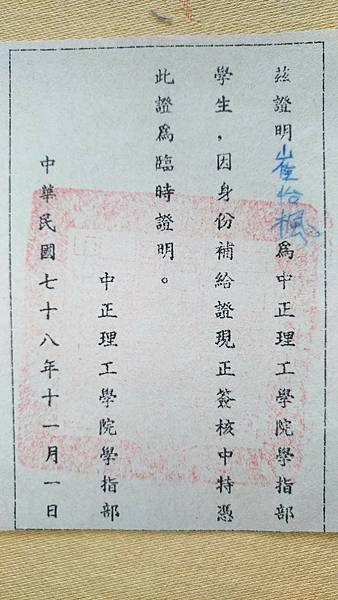 茲證明崔怡楓為中正理工學院學指部
學生，因身份補給證現正簽核中特憑
此證為臨時證明。
中正理工學院學指部
中華民國七十八年十一月一日